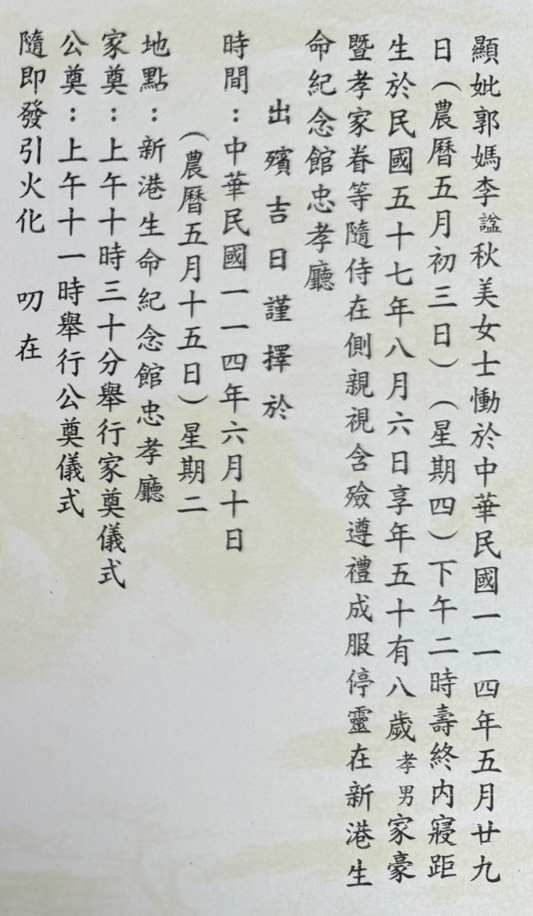 顯妣郭媽李諡秋美女士慟於中華民國一一四年五月廿九
日（農曆五月初三日）（星期四）下午二時壽終內寢距
生於民國五十七年八月六日享年五十有八歲孝男家豪
暨孝家眷等隨侍在側親視含殮遵禮成服停靈在新港生
命紀念館忠孝廳
出殯吉日謹擇於
時間：中華民國一一四年六月十日
（農曆五月十五日）星期二
地點：新港生命紀念館忠孝廳
家奠：上午十時三十分舉行家奠儀式
公奠：上午十一時舉行公奠儀式
隨即發引火化 叨在